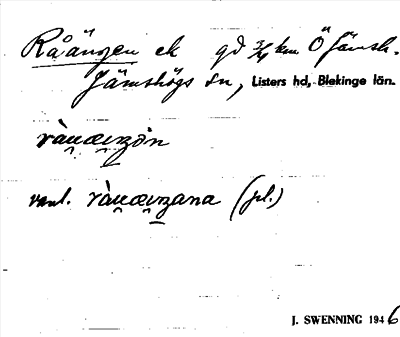 Råängen ek gd 3/4 km Ö Jämsh.
Jämshögs sn, Listers hd, Blekinge län.
vanl. (pl.)
J. SWENNING 1946